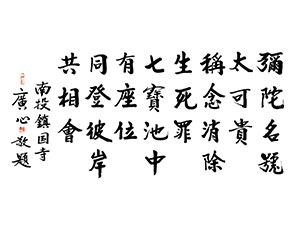 彌陀名號
太可貴
稱念消除
生死罪
七寶池中
有座位
同登彼岸
共相會
南投鎮国寺
廣心敬題